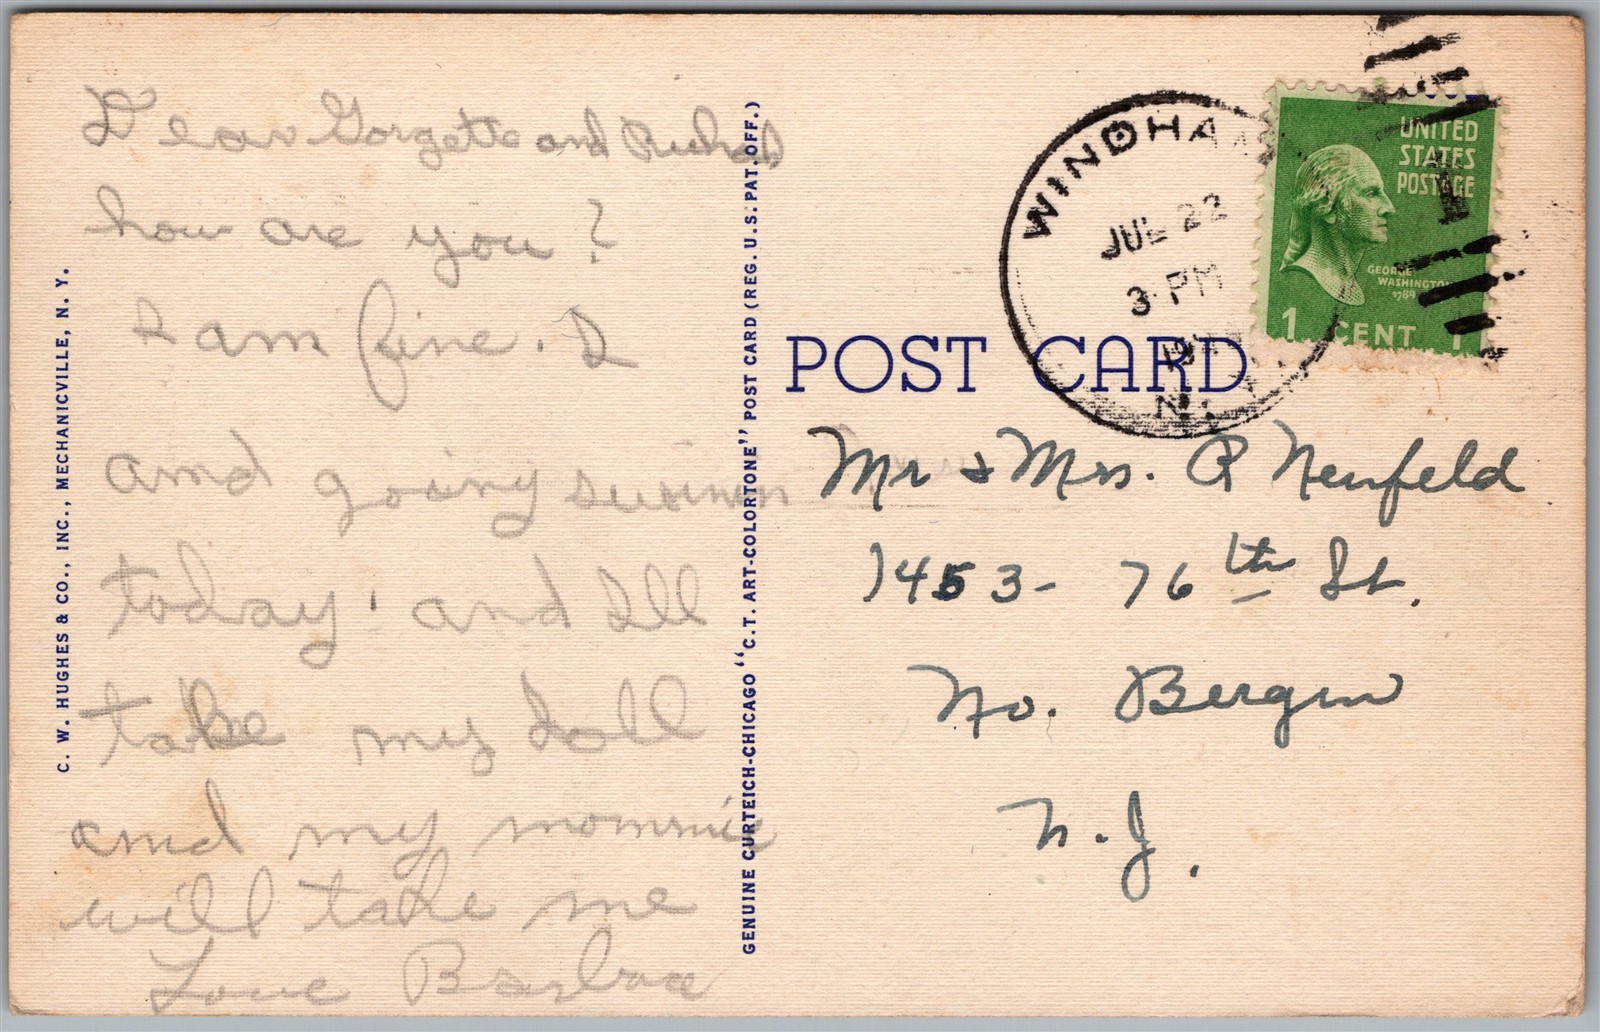 Dear Gorgette and Richard
how are you?
I am fine. I
amd going swimmin
today and Ill
take my doll
amd my mommie
will take me
Love Barbara
C. W. HUGHES & CO., INC., MECHANICVILLE, N. Y.
GENUINE CURTEICH-CHICAGO "C.T. ART-COLORTONE" POST CARD (REG. U.S. PAT. OFF.)
POST CARD
WINDHAM
JUL 22
3 PM
N.Y.
UNITED
STATES
POSTAGE
GEORGE
WASHINGTON
1789
1 CENT 1
Mr & Mrs. R Neufeld
1453 - 76th St.
No. Bergen
N.J.